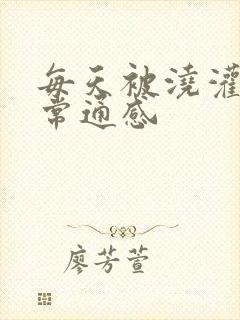 每天被浇灌
常通感
廖芳萱